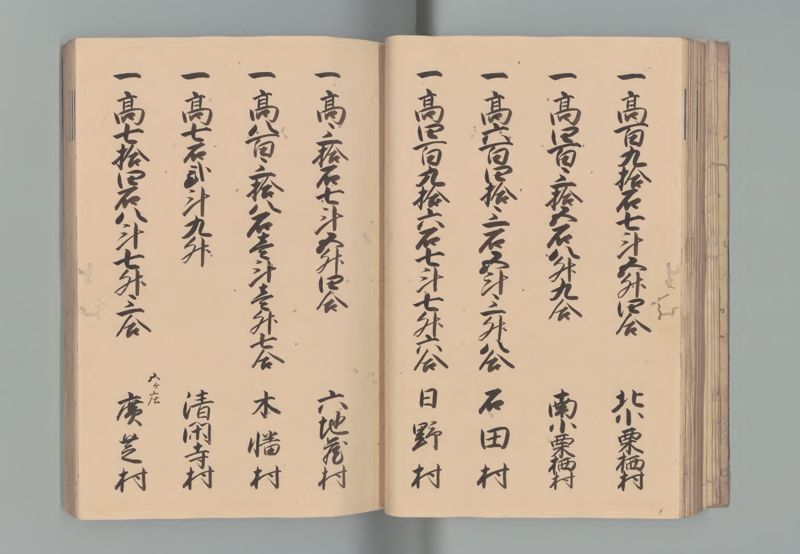 一高百九拾石七斗五升四合 北小栗栖村
一高四百三拾五石八升九合 南小栗栖村
一高六百四拾三石五斗三升八合 石田村
一高四百九拾六石七斗七升六合 日野村
一高三拾石七斗五升四合 六地蔵村
一高八百三拾八石壱斗壱升七合 木幡村
一高七石弐斗九升 清閑寺村
一高七拾四石八斗七升三合 廣芝村
五ケ庄